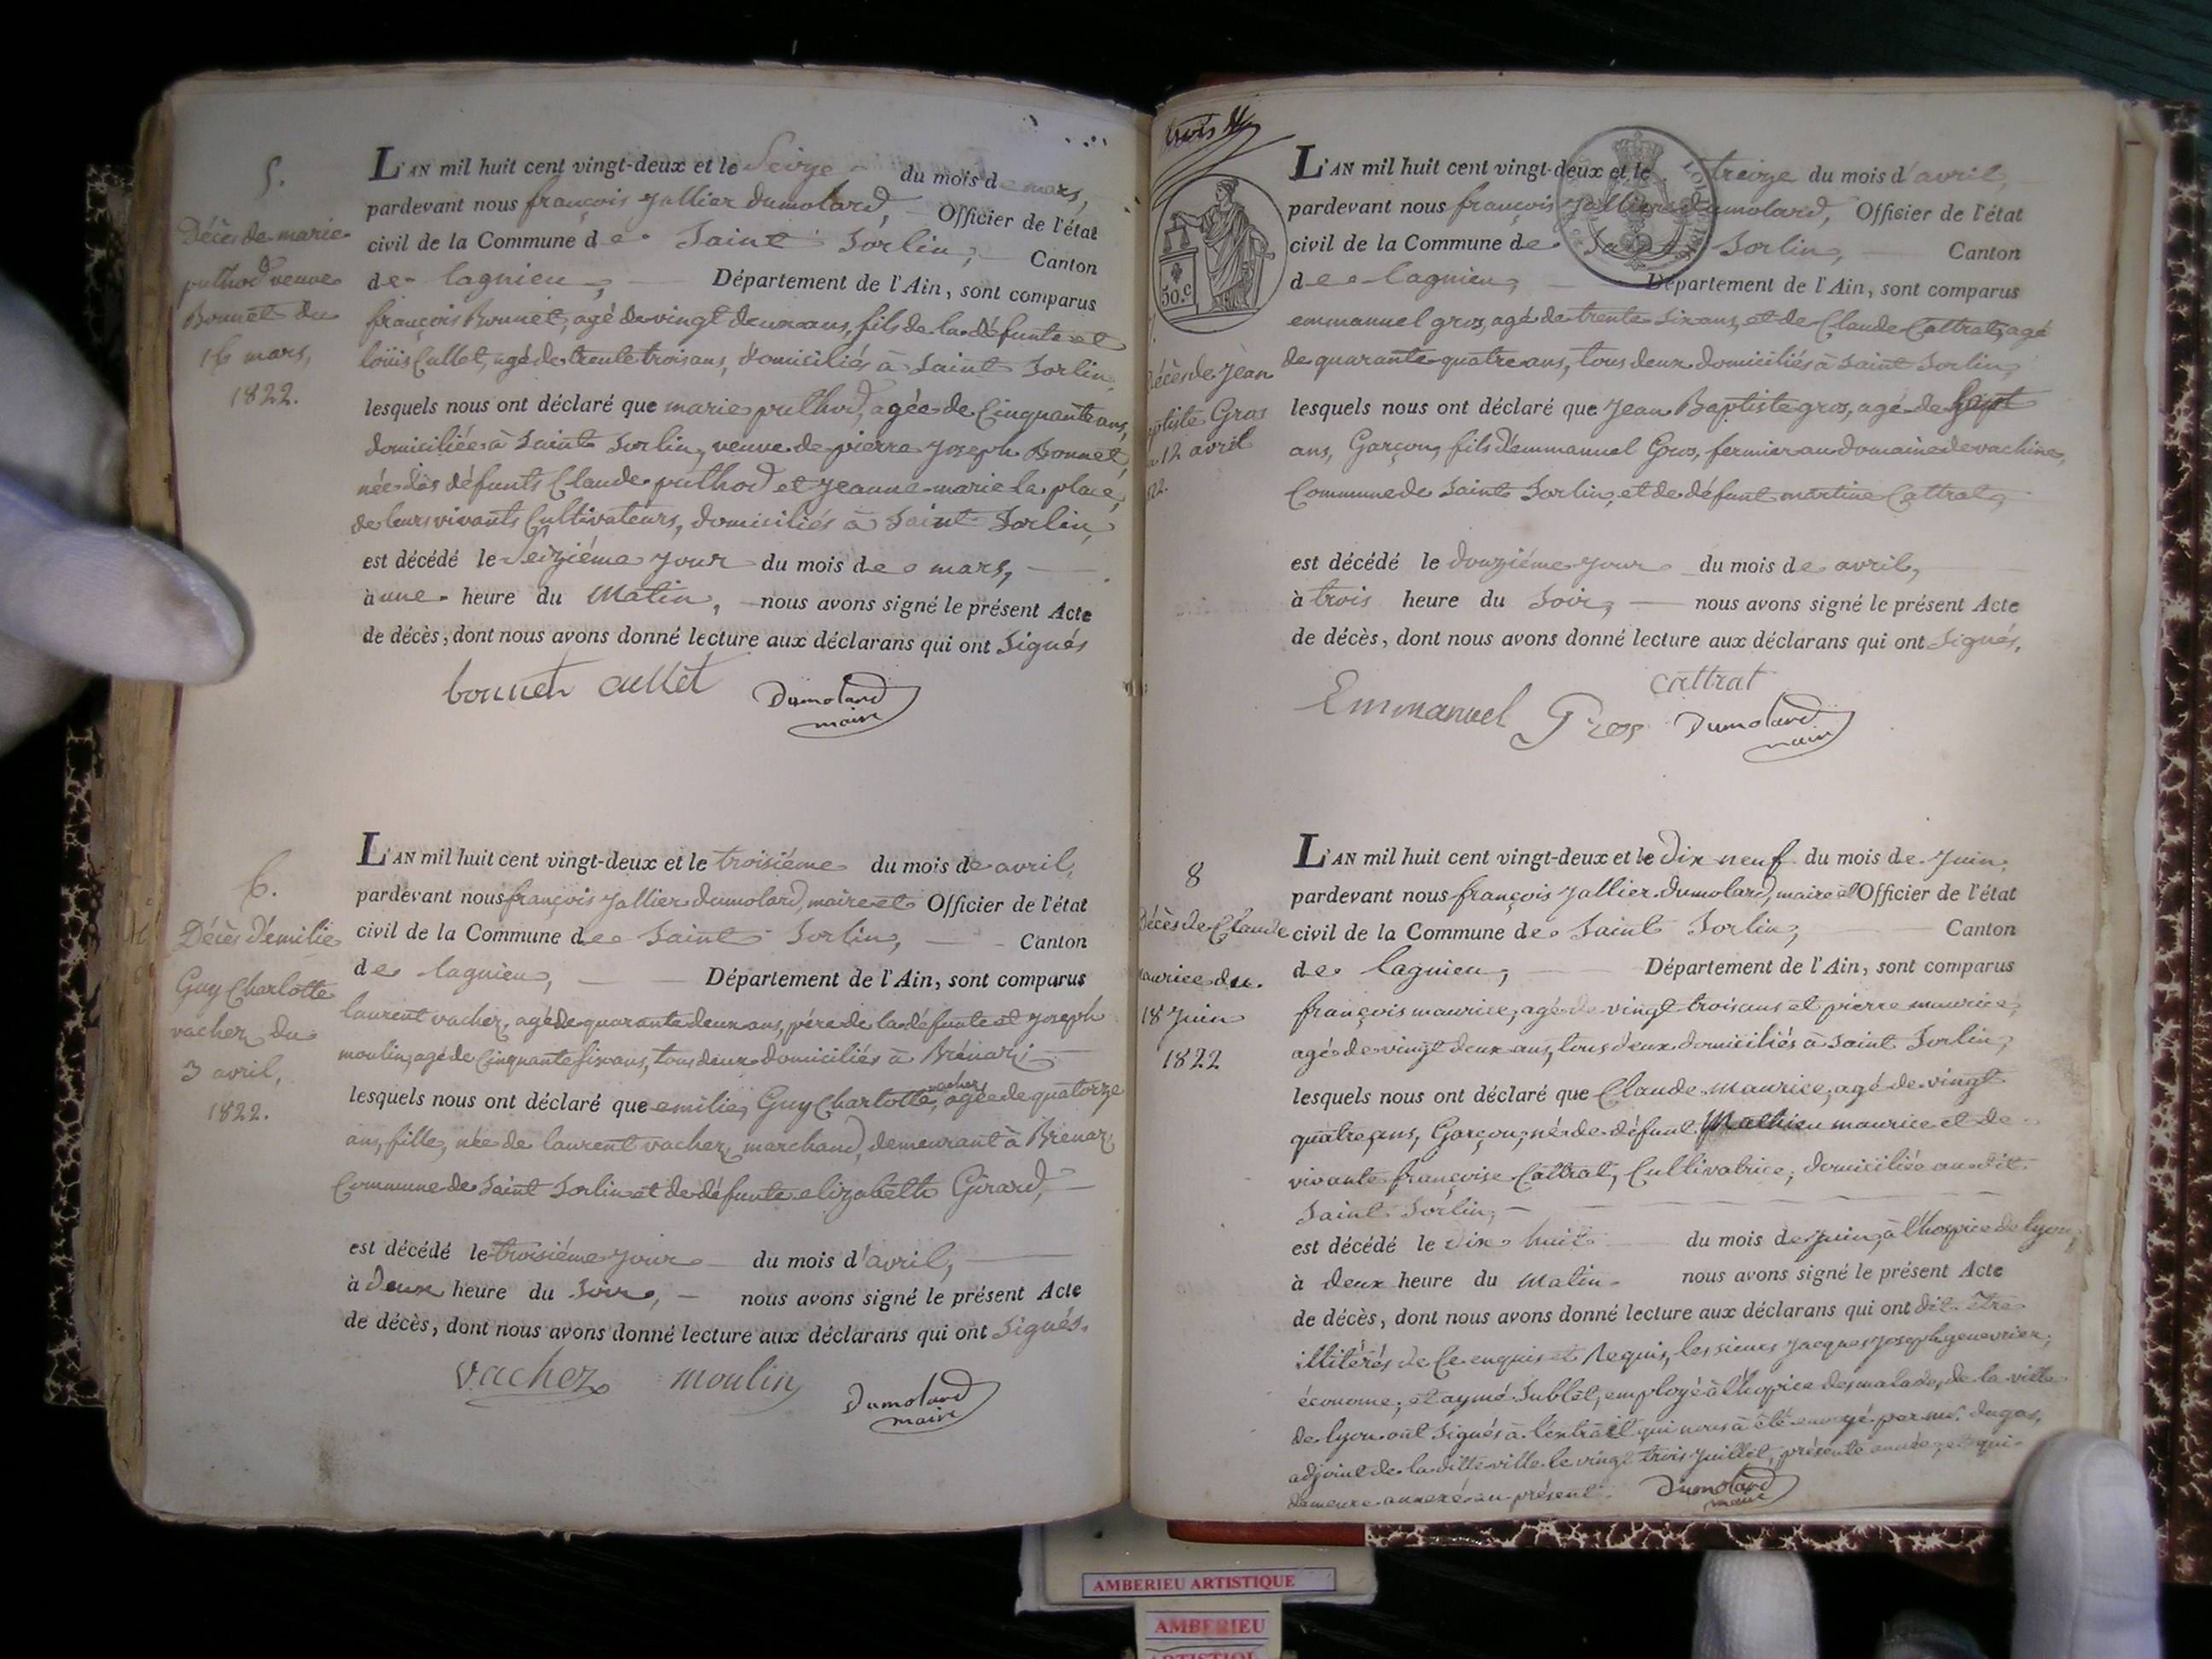 5.
Décès de marie
puthod veuve
Bonnet du
16 mars,
1822.
L'AN mil huit cent vingt-deux et le Seize du mois de mars,
pardevant nous françois Jallier dumolard, Officier de l'état
civil de la Commune de Saint Sorlin, Canton
de lagnieu, Département de l'Ain, sont comparus
françois Bonnet, agé de vingt deux ans, fils de la défunte et
loüis Cullet, agé de trente trois ans, domiciliés à Saint Sorlin,
lesquels nous ont déclaré que marie puthod, agée de Cinquante ans,
domiciliée à Saint Sorlin, veuve de pierre Joseph Bonnet,
née des défunts Claude puthod et Jeanne marie la place,
de leurs vivants Cultivateurs, domiciliés à Saint Sorlin,
est décédé le Seiziéme jour du mois de mars,
à une heure du Matin, nous avons signé le présent Acte
de décès, dont nous avons donné lecture aux déclarans qui ont Signés
bonnet cullet Dumolard
maire
6.
Décès d'émilie
Guy Charlotte
vachez du
3 avril,
1822.
L'AN mil huit cent vingt-deux et le troisiéme du mois de avril,
pardevant nous françois Jallier dumolard, maire et Officier de l'état
civil de la Commune de Saint Sorlin, Canton
de lagnieu, Département de l'Ain, sont comparus
laurent vachez, agé de quarante deux ans, pére de la défunte et Joseph
moulin, agé de Cinquante six ans, tous deux domiciliés à Brénaz;
lesquels nous ont déclaré que emilie, Guy Charlotte, vachez, agée de quatorze
ans, fille, née de laurent vachez, marchand, demeurant à Brenaz,
Commune de Saint Sorlin et de défunte elizabeth Girard,
est décédé le troisiéme jour du mois d'avril,
à Deux heure du Soir, nous avons signé le présent Acte
de décès, dont nous avons donné lecture aux déclarans qui ont Signés.
vachez moulin Dumolard
maire
50.c
Décès de Jean
Baptiste Gros
12 avril
L'AN mil huit cent vingt-deux et le treize du mois d'avril,
pardevant nous françois Jallier dumolard, Officier de l'état
civil de la Commune de Saint Sorlin, Canton
de lagnieu, Département de l'Ain, sont comparus
emmanuel gros, agé de trente six ans, et de Claude Cattrat, agé
de quarante quatre ans, tous deux domiciliés à Saint Sorlin,
lesquels nous ont déclaré que Jean Baptiste gros, agé de Sept
ans, Garçon, fils d'emmanuel Gros, fermier au domaine de vachine,
Commune de Saint Sorlin, et de défunt martine Cattrat,
est décédé le douziéme jour du mois de avril,
à trois heure du Soir, nous avons signé le présent Acte
de décès, dont nous avons donné lecture aux déclarans qui ont Signés.
cattrat
Emmanuel Gros Dumolard
maire
8
Décès de Claude
maurice du
18 Juin
1822
L'AN mil huit cent vingt-deux et le Dix neuf du mois de Juin,
pardevant nous françois Jallier dumolard, maire et Officier de l'état
civil de la Commune de Saint Sorlin, Canton
de lagnieu, Département de l'Ain, sont comparus
françois maurice, agé de vingt trois ans et pierre maurice,
agé de vingt deux ans, tous deux domiciliés à Saint Sorlin,
lesquels nous ont déclaré que Claude maurice, agé de vingt
quatre ans, Garçon, né de défunt Mathieu maurice et de
vivante françoise Cattrat, Cultivatrice, domiciliée au dit
Saint Sorlin,
est décédé le dix huit du mois de Juin, à l'hospice de lyon,
à deux heure du Matin nous avons signé le présent Acte
de décès, dont nous avons donné lecture aux déclarans qui ont dit être
illitérés de Ce enquis et Requis, les sieurs Jacques Joseph genevrier,
économe, et aymé Sublet, employé à l'hospice des malades de la ville
de lyon ont Signés à l'extrait qui nous à été envoyé par mr. dugas,
adjoint de la ditte ville le vingt trois Juillet, présente année, et qui
demeure annexé au présent. Dumolard
maire
AMBERIEU ARTISTIQUE
AMBERIEU
ARTISTIQUE